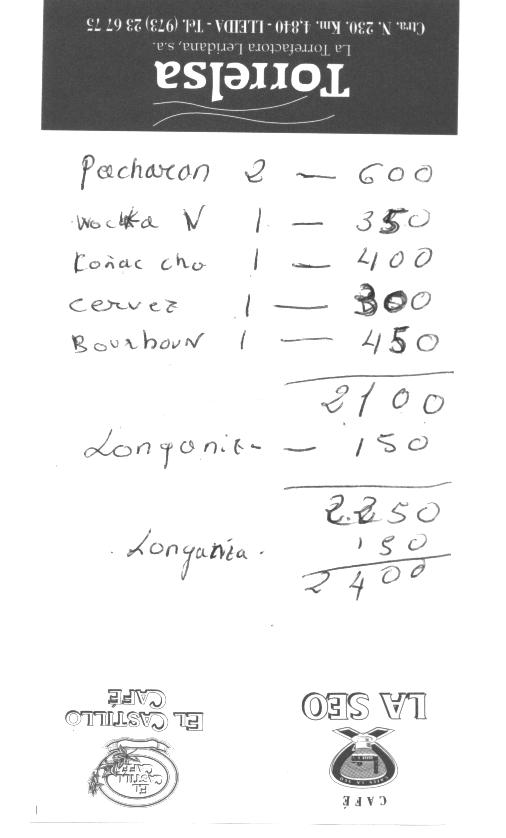 Ctra. N. 230. Km. 4,840 - LLEIDA - Tel. (973) 23 67 75
La Torrefactora Leridana, s.a.
Torrelsa
Pacharan 2 — 600
Wodka N 1 — 350
Coñac cho 1 — 400
cervez 1 — 300
Bourboun 1 — 450
2100
Longaniz — 150
2.250
Longaniza. 150
2400
EL CASTILLO
CAFÉ
EL
CASTILLO
CAFÉ
LA SEO
CAFÉ